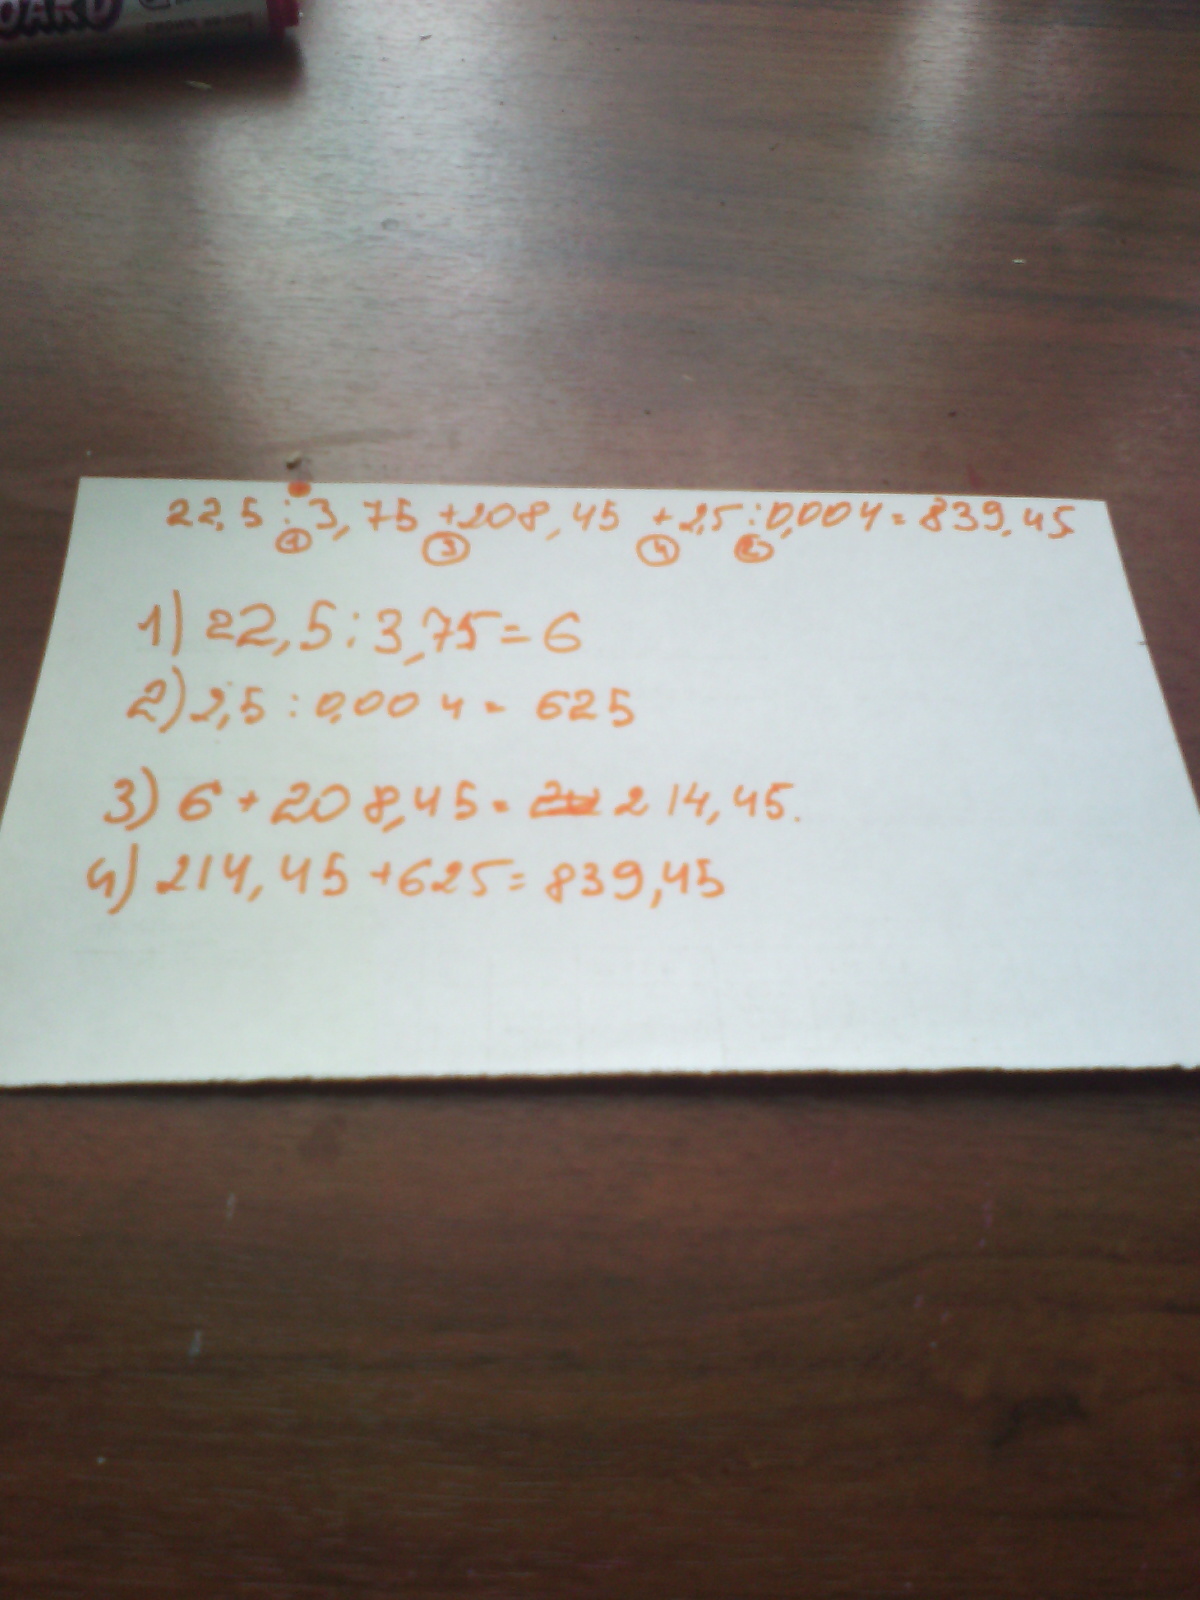 OARD
22,5 : 3,75 + 208,45 + 2,5 : 0,004 = 839,45
① ③ ④ ②
1) 22,5 : 3,75 = 6
2) 2,5 : 0,004 = 625
3) 6 + 208,45 = 214,45.
4) 214,45 + 625 = 839,45